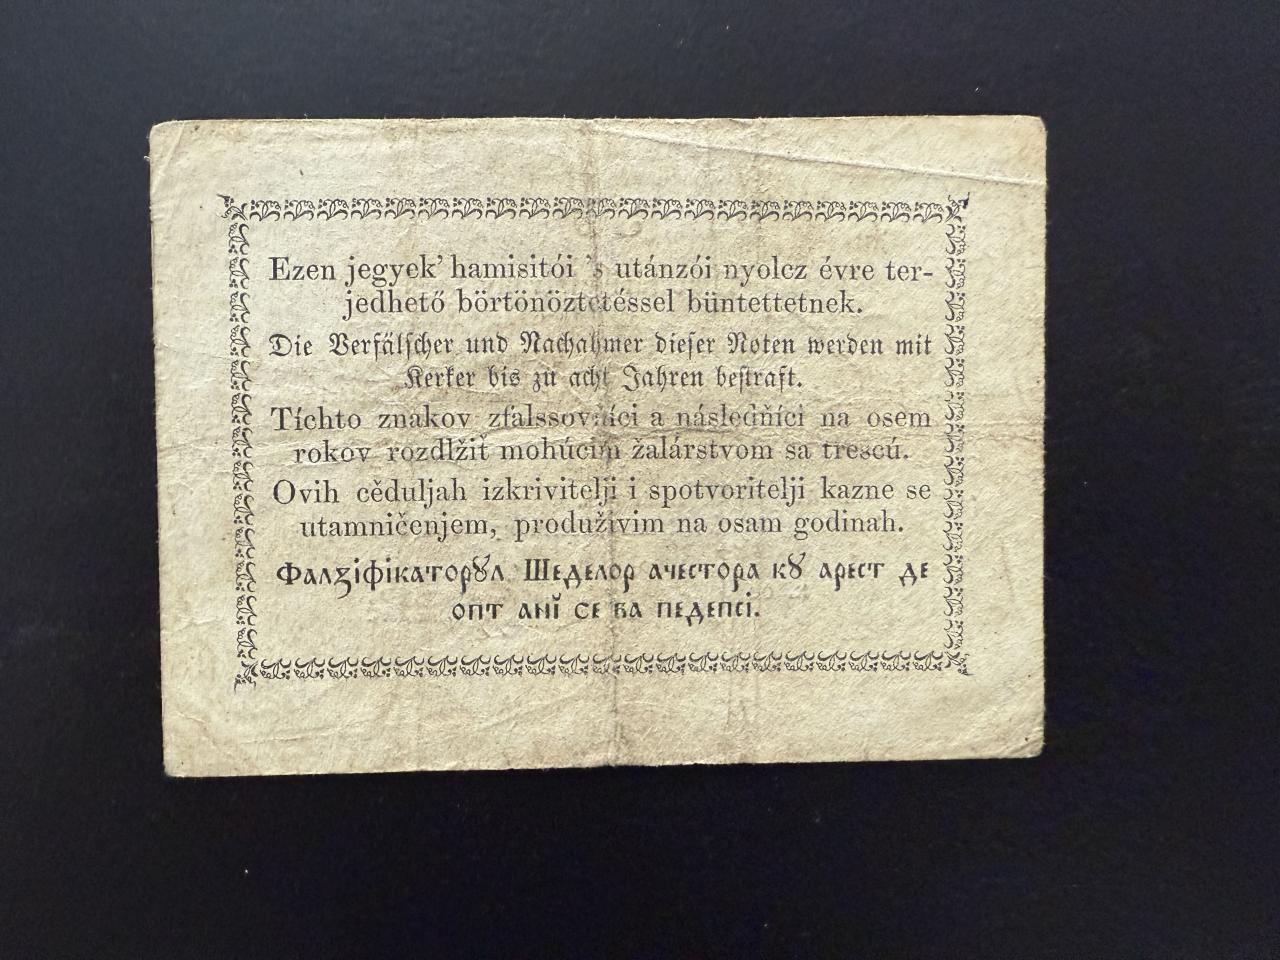 Ezen jegyek’ hamisitói ’s utánzói nyolcz évre ter-
jedhető börtönöztetéssel büntettetnek.
Die Verfälscher und Nachahmer dieser Noten werden mit
Kerker bis zu acht Jahren bestraft.
Tíchto znakov zfalssovňíci a následňíci na osem
rokov rozdlžiť mohúcim žalárstvom sa trescú.
Ovih cěduljah izkrivitelji i spotvoritelji kazne se
utamničenjem, produživim na osam godinah.
Фалꙁіфікаторꙋл Шеделор ачестора кꙋ арест де
опт анї се ва педепсі.